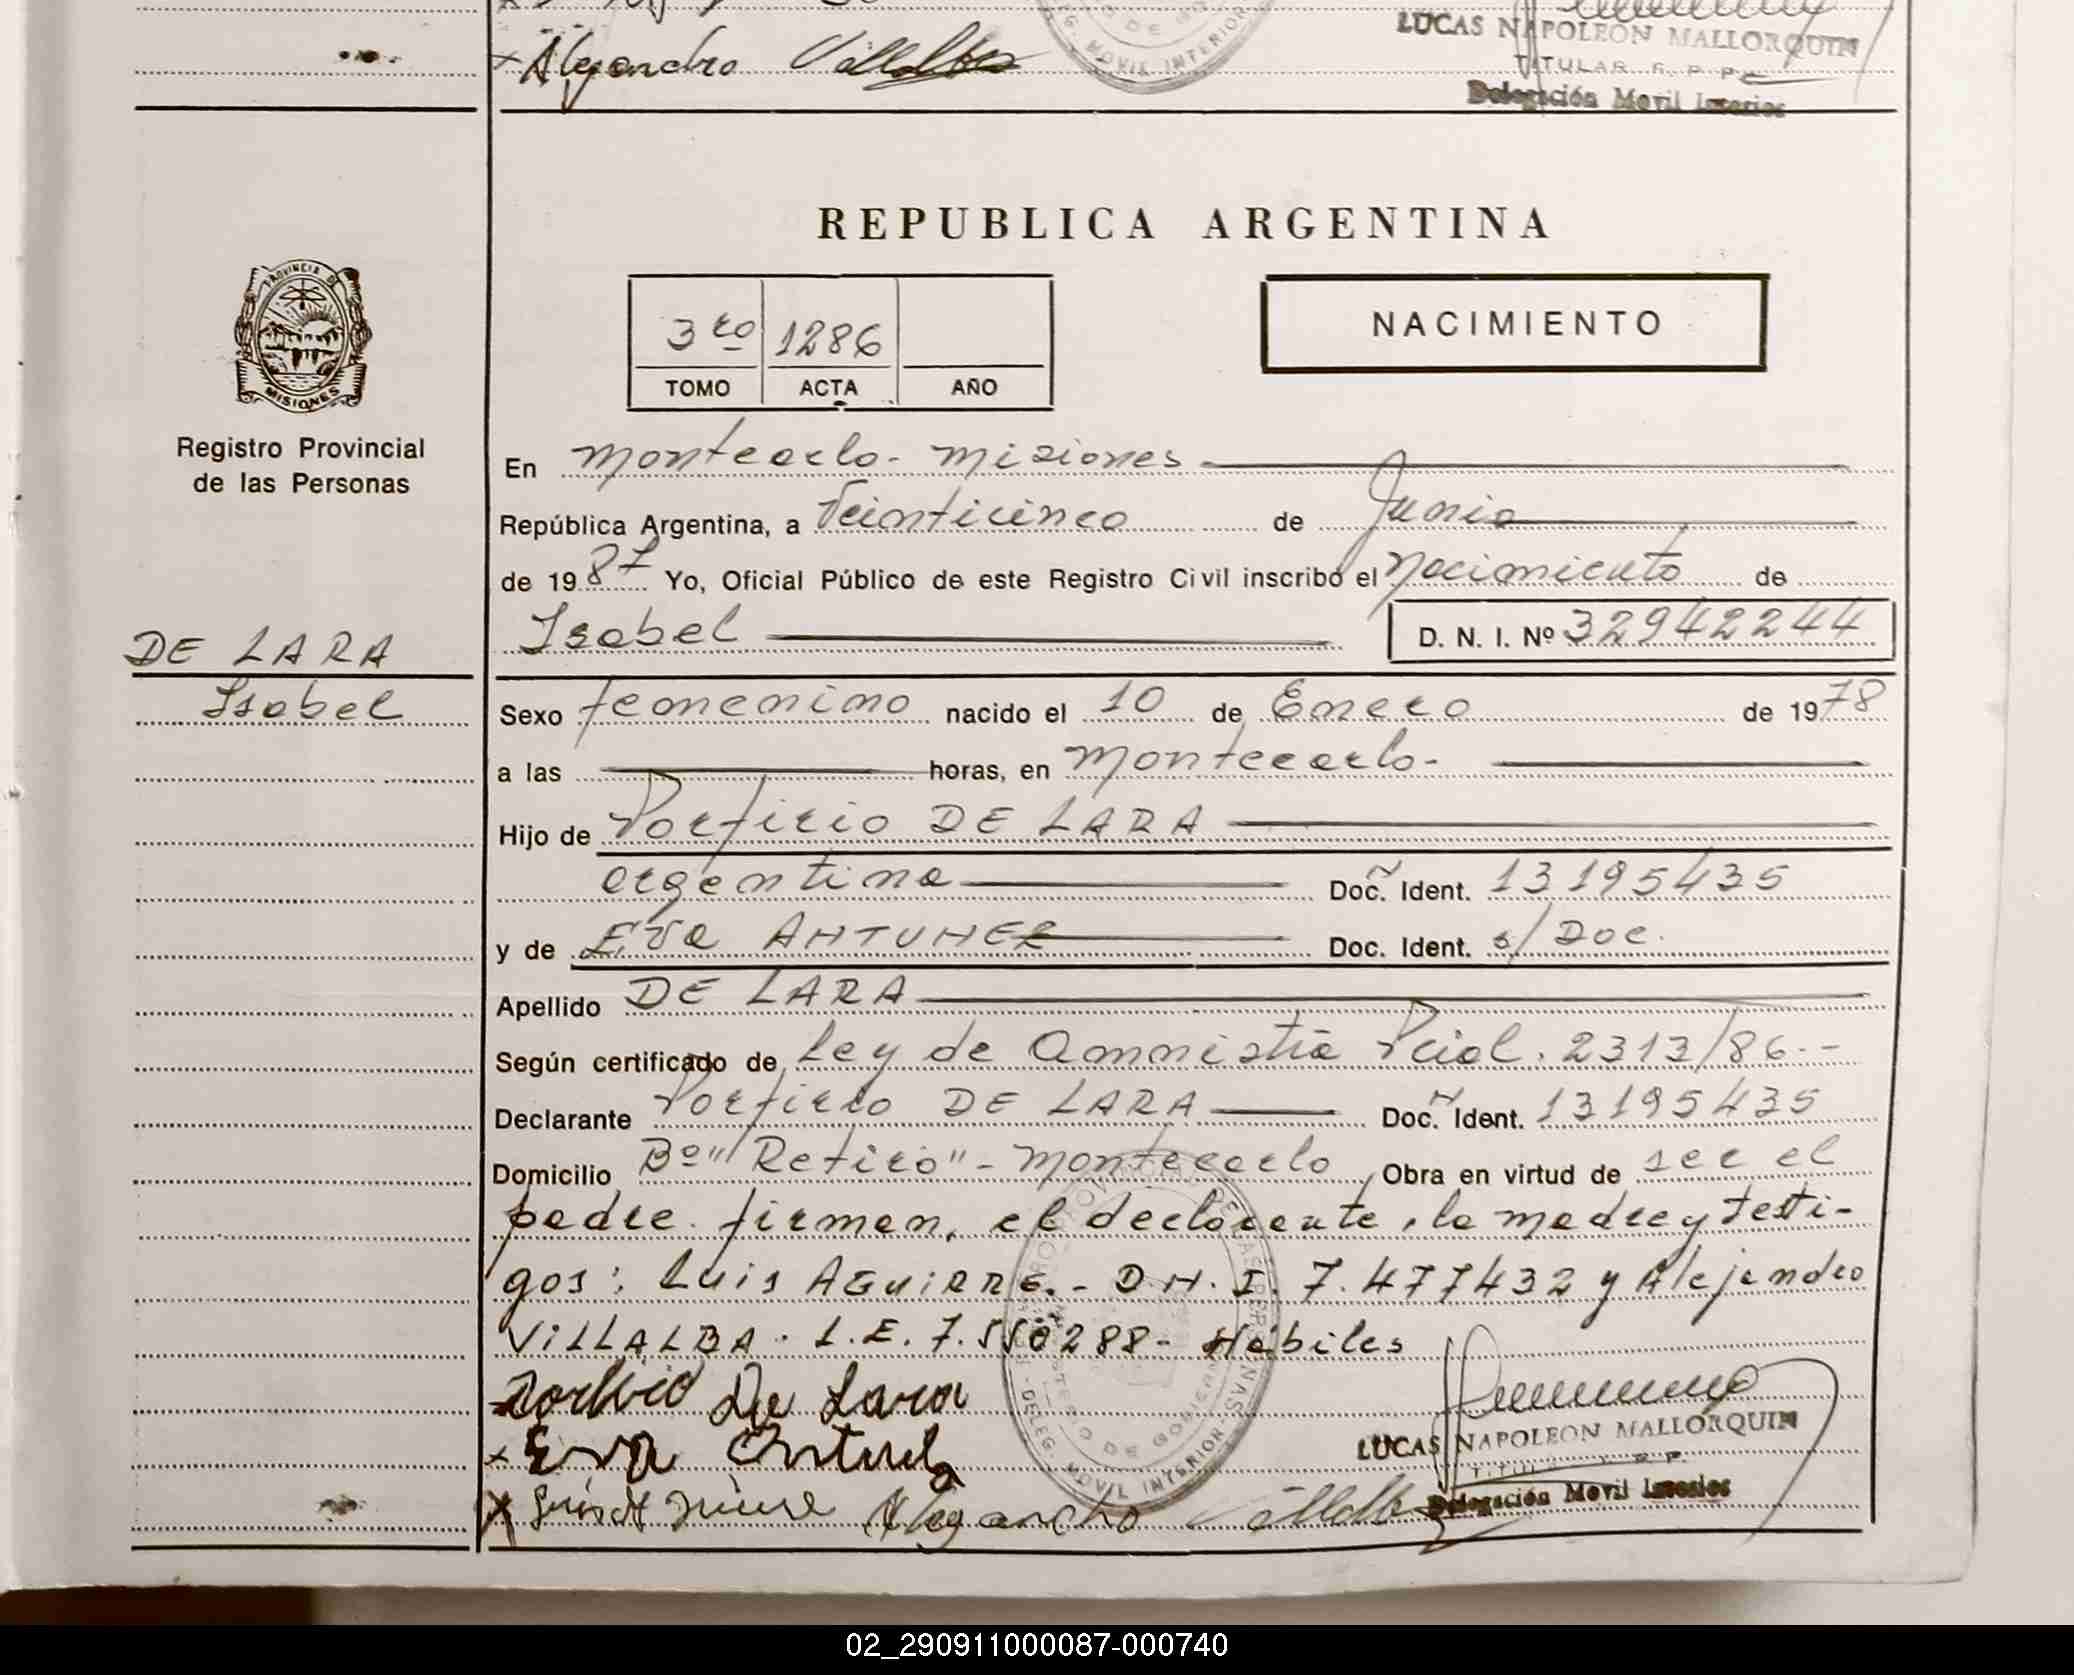 Alejandro Villalba
DELEG. MOVIL INTERIOR
LUCAS NAPOLEON MALLORQUIN
TITULAR R. P. P.
Delegación Movil Interior
REPUBLICA ARGENTINA
NACIMIENTO
3ro 1286
TOMO ACTA AÑO
PROVINCIA DE
MISIONES
Registro Provincial
de las Personas
En Montecarlo - Misiones
República Argentina, a Veinticinco de Junio
de 1987 Yo, Oficial Público de este Registro Civil inscribo el Nacimiento de
Isabel D. N. I. Nº 32942244
DE LARA
Isabel
Sexo femenino nacido el 10 de Enero de 1978
a las horas, en Montecarlo -
Hijo de Porfirio DE LARA
argentina Doc. Ident. 13195435
y de Eva ANTUNER Doc. Ident. s/Doc.
Apellido DE LARA
Según certificado de Ley de Amnistia Pcial. 2313/86.-
Declarante Porfirio DE LARA Doc. Ident. 13195435
Domicilio Bº "Retiro" - Montecarlo, Obra en virtud de ser el
padre. firman, el declarante, la madre y testi-
gos: Luis AGUIRRE.- D.N.I. 7.477432 y Alejandro
VILLALBA. L.E. 7.550288- Hábiles
De Lara
x Eva
Alejandro Villalba
DELEG. MOVIL INTERIOR
LUCAS NAPOLEON MALLORQUIN
Delegación Movil Interior
02_290911000087-000740